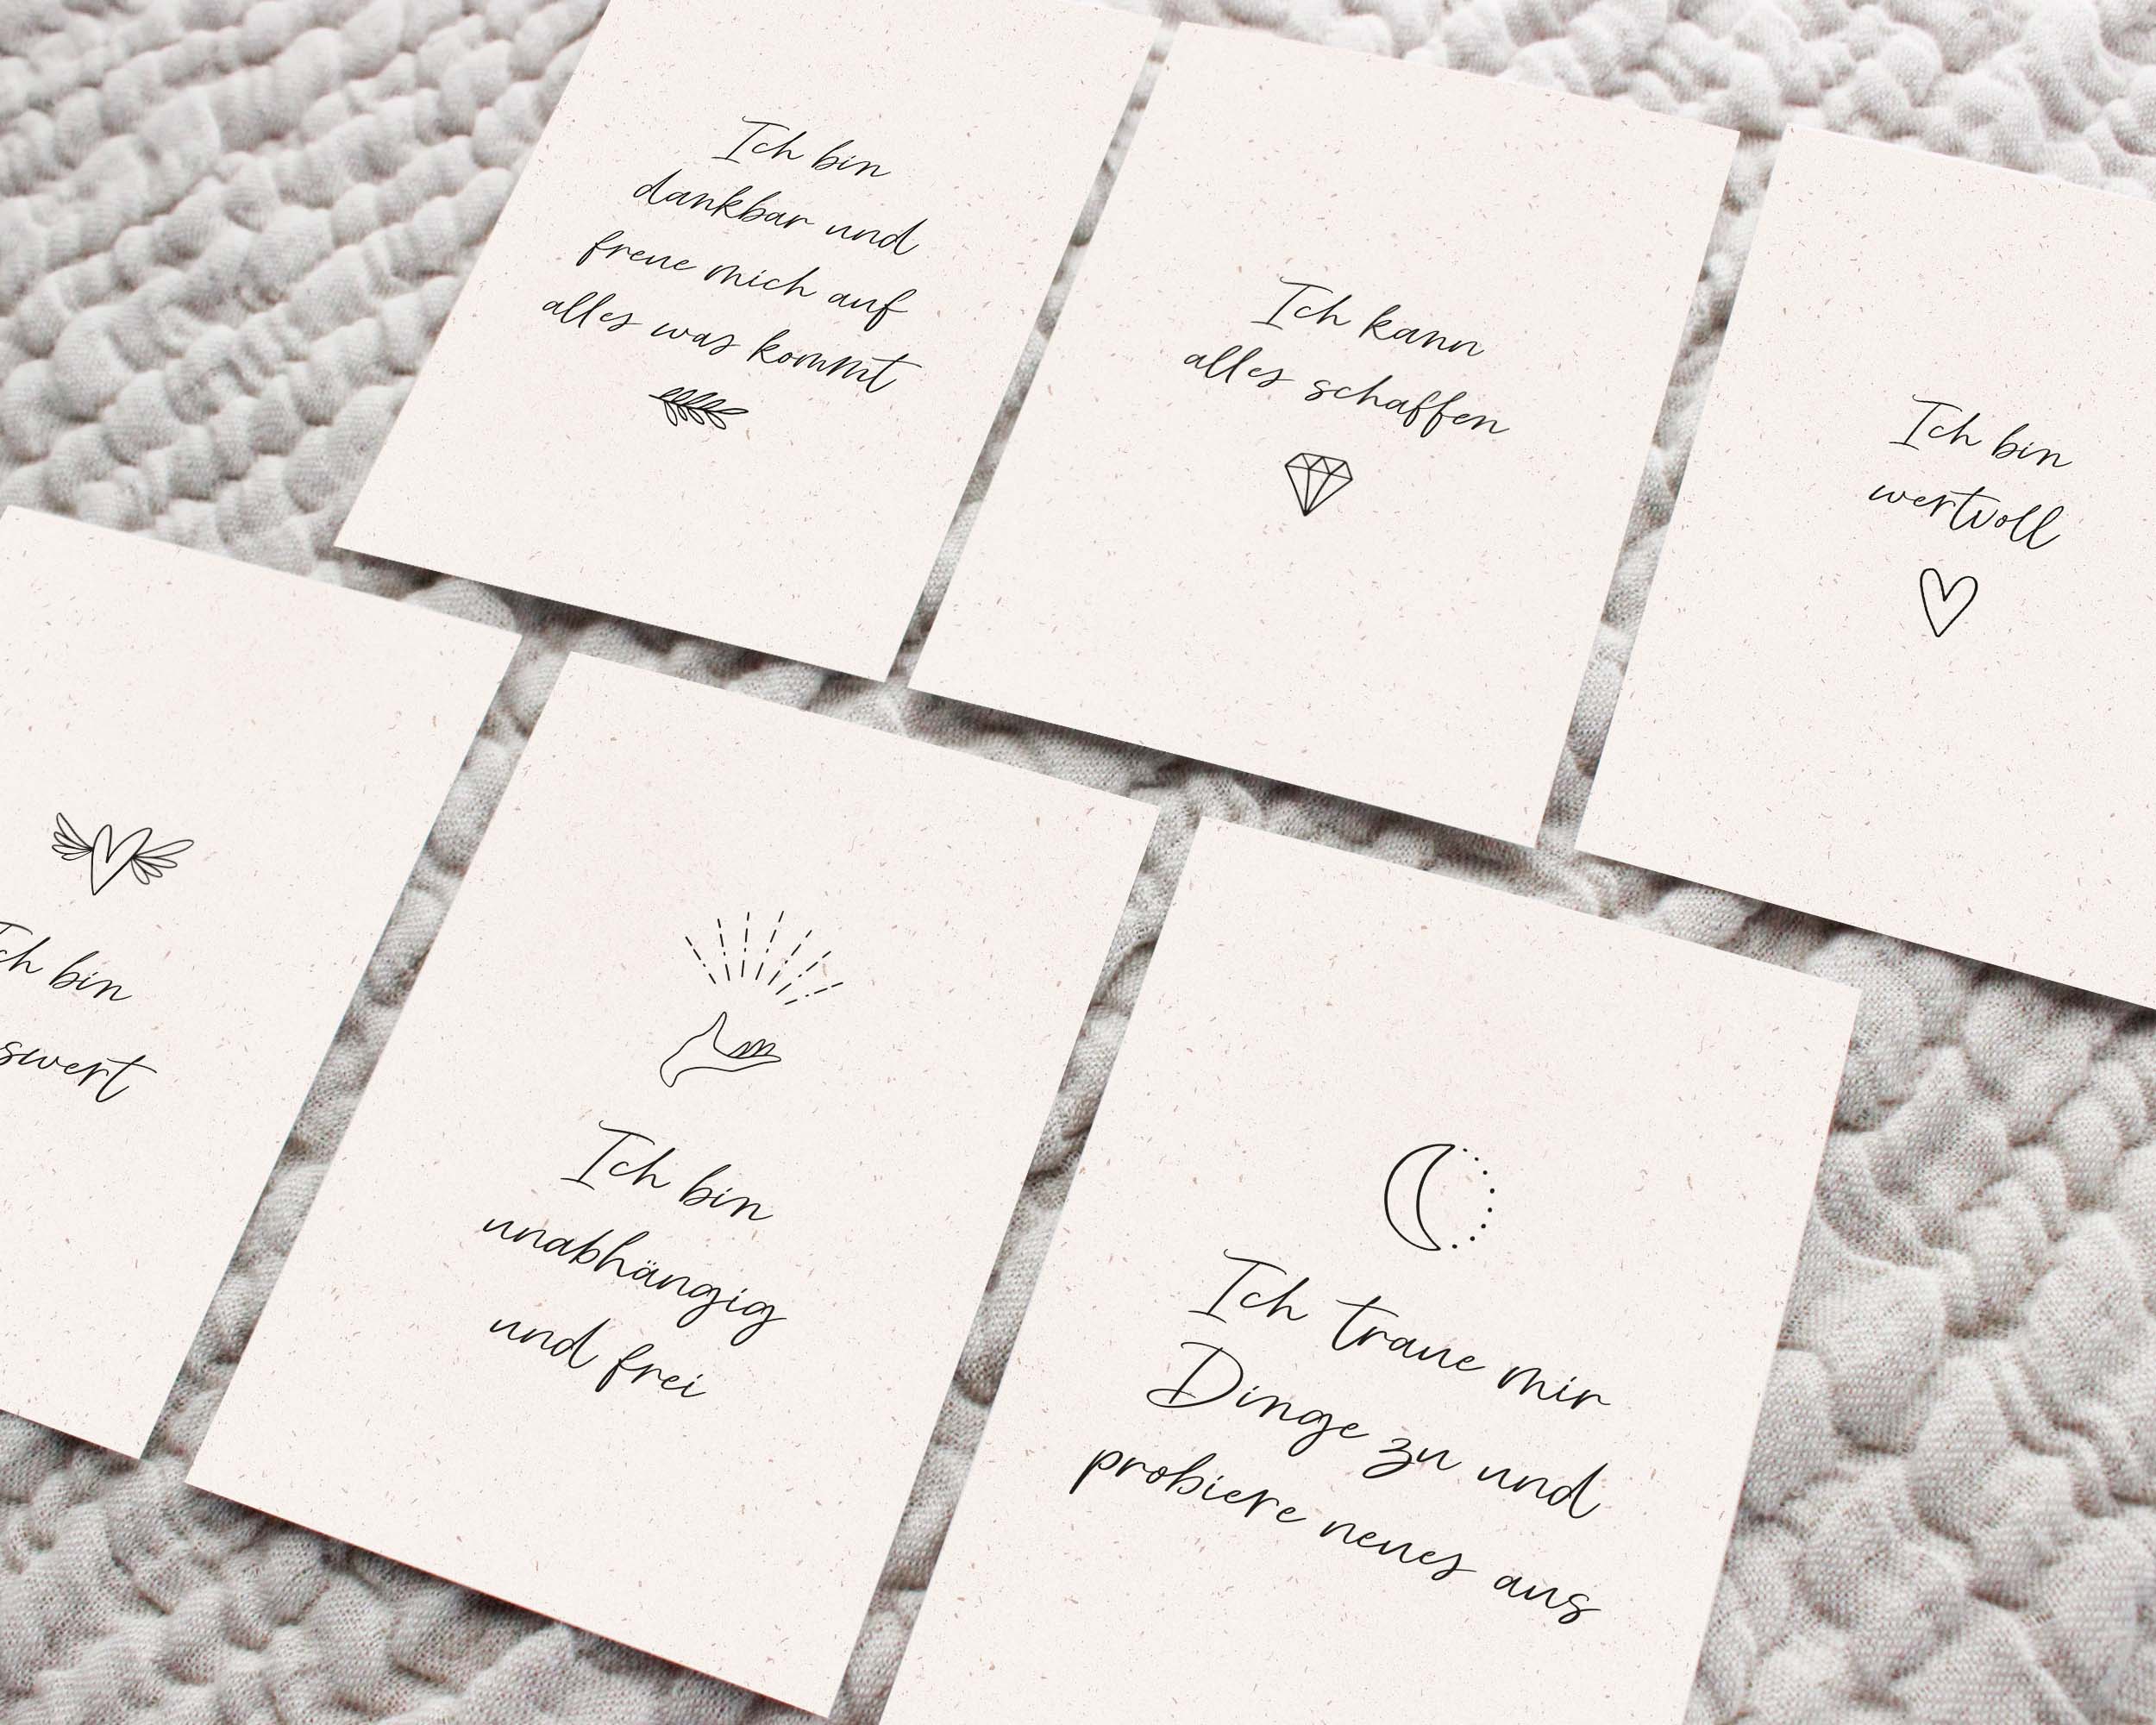 Ich bin
dankbar und
freue mich auf
alles was kommt
Ich kann
alles schaffen
Ich bin
wertvoll
Ich bin
swert
Ich bin
unabhängig
und frei
Ich traue mir
Dinge zu und
probiere neues aus